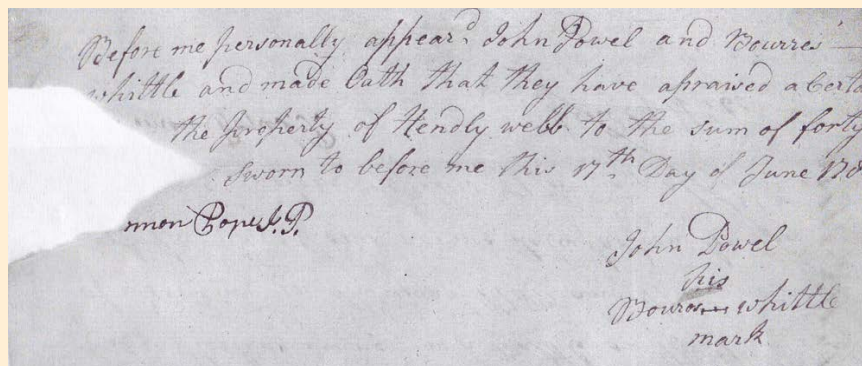 Before me personally appear.d John Powel and Bourres
whittle and made Oath that they have apraised a Certa
the property of Hendly webb to the sum of forty
Sworn to before me this 17th Day of June 178
mon Pope J.P.
John Powel
his
Bouros whittle
mark